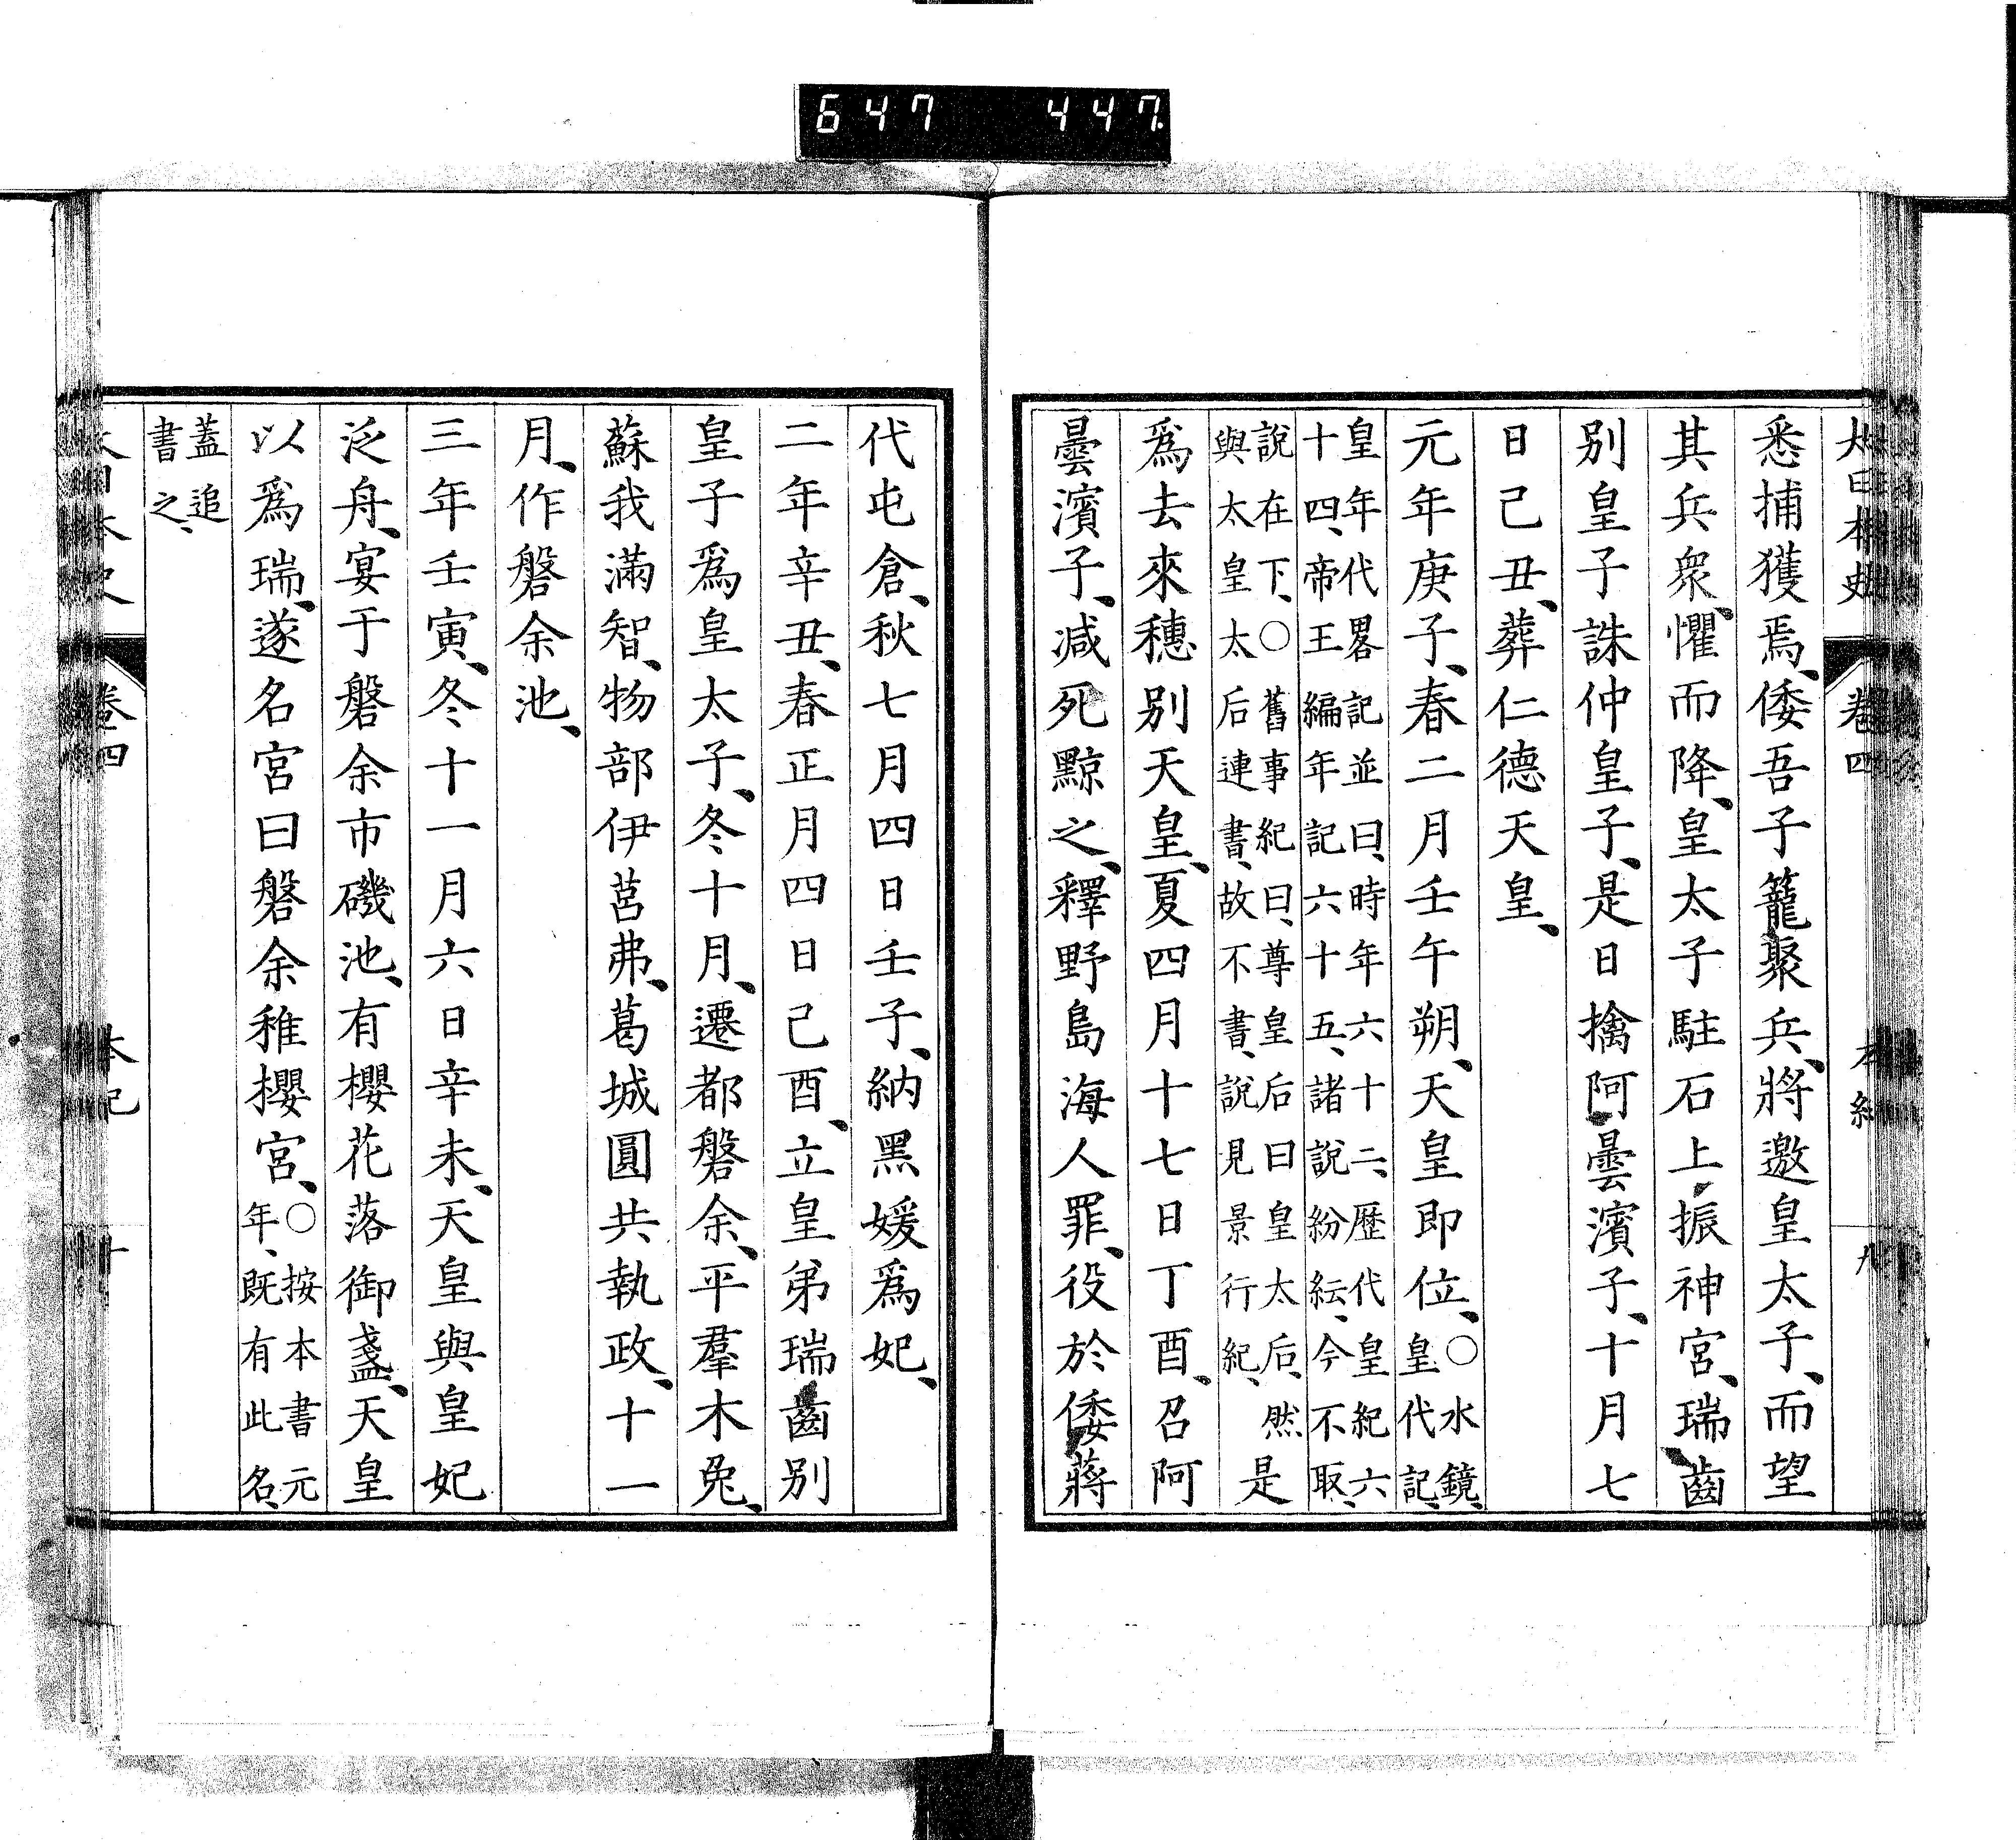 647 447.
大日本史 卷四 本紀 九
悉捕獲焉、倭吾子籠聚兵、將邀皇太子、而望
其兵衆、懼而降、皇太子駐石上振神宮、瑞齒
別皇子誅仲皇子、是日擒阿曇濱子、十月七
日己丑、葬仁德天皇、
元年庚子、春二月壬午朔、天皇即位、○水鏡、皇代記、
皇年代畧記並曰、時年六十二、歷代皇紀六
十四、帝王編年記六十五、諸說紛紜、今不取、
說在下、○舊事紀曰、尊皇后曰皇太后、然
與太皇太后連書、故不書、說見景行紀、是
爲去來穗別天皇、夏四月十七日丁酉、召阿
曇濱子、減死黥之、釋野島海人罪、役於倭蔣
代屯倉、秋七月四日壬子、納黑媛爲妃、
二年辛丑、春正月四日己酉、立皇弟瑞齒別
皇子爲皇太子、冬十月、遷都磐余、平羣木兔、
蘇我滿智、物部伊莒弗、葛城圓共執政、十一
月、作磐余池、
三年壬寅、冬十一月六日辛未、天皇與皇妃
泛舟、宴于磐余市磯池、有櫻花落御盞、天皇
以爲瑞、遂名宮曰磐余稚櫻宮、○按本書元
年、既有此名、
蓋追
書之、
大日本史 卷四 本紀 十